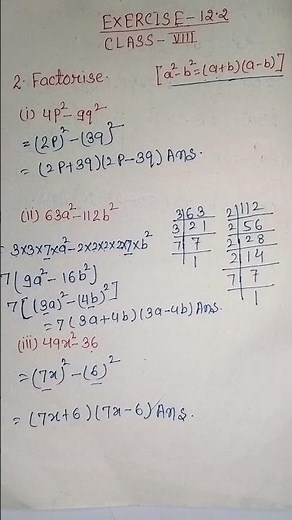 EXERCISE-12.2
CLASS-VIII
2. Factorise. [a²-b²=(a+b)(a-b)]
(i) 4p²-9q²
= (2p)²-(3q)²
= (2p+3q)(2p-3q) Ans.
(ii) 63a²-112b²
= 3×3×7×a²-2×2×2×2×7×b²
7[9a²-16b²]
7[(3a)²-(4b)²]
= 7(3a+4b)(3a-4b) Ans.
3 63
3 21
7 7
1
2 112
2 56
2 28
2 14
7 7
1
(iii) 49x²-36
= (7x)²-(6)²
= (7x+6)(7x-6) Ans.